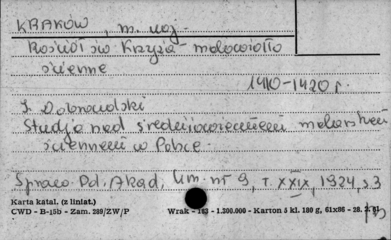 KRAKÓW, m. woj.
Kościół św Krzyża - malowidło
ścienne
1410-1420 r.
J. Dobrowolski
Studja nad średniowiecznem malarstwem
ściennem w Polsce.
Spraw. Pol. Akad. Um. nr 9, T. XXIX, 1924, s. 3
Karta katal. (z liniat.)
CWD - B-15b - Zam. 289/ZW/P
Wrak - 163 - 1.300.000 - Karton 5 kl. 180 g, 61x86 - 28.